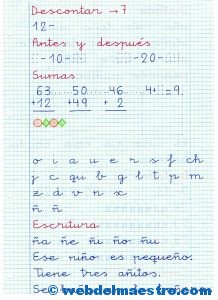 Descontar → 7
12-
Antes y después
-10- -20-
Sumas
63 50 46 4+ =9.
+12 +49 + 2
o i a u e r s f ch
j c qu b g l t p m
z d v n x
ñ ñ
Escritura
ña ñe ñi ño ñu
Ese niño es pequeño.
Tiene tres añitos.
© webdelmaestro.com